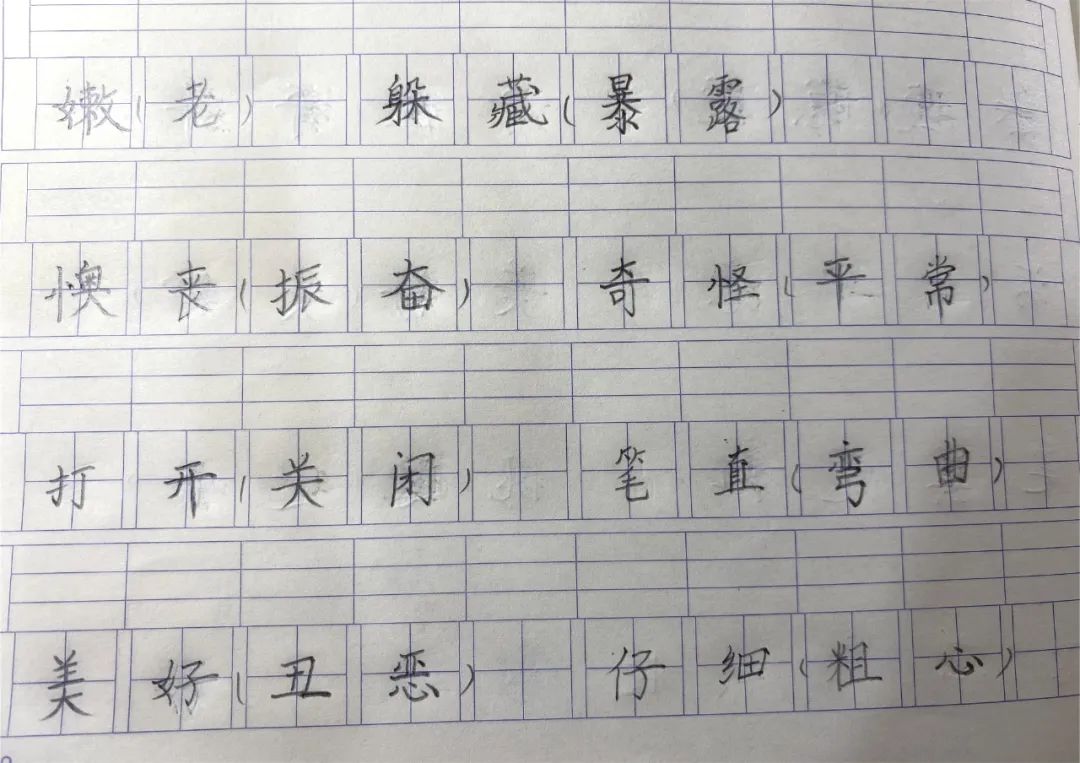 嫩(老) 躲藏(暴露)
懊丧(振奋) 奇怪(平常)
打开(关闭) 笔直(弯曲)
美好(丑恶) 仔细(粗心)